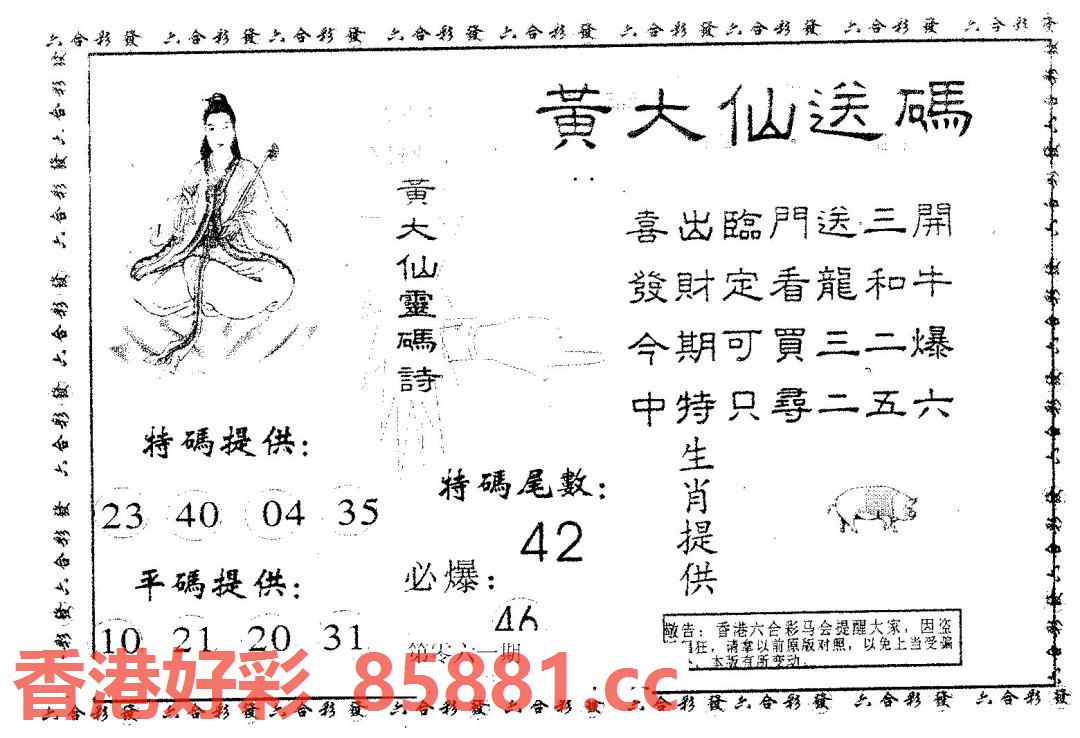 六合彩發 六合彩發六合彩發 六合彩發六合彩發 六合彩發六合彩發 六合彩發 六合彩發
黃大仙送碼
黃大仙靈碼詩
喜出臨門送三開
發財定看龍和牛
今期可買三二爆
中特只尋二五六
生肖提供
特碼提供:
23 40 04 35
特碼尾數:
42
平碼提供:
必爆:
46
10 21 20 31
第零六一期
敬告:香港六合彩马会提醒大家,因盗
狂,请拿以前原版对照,以免上当受骗
本版有所变动.
香港好彩 85881.cc
六合彩發 六合彩發六合彩發 六合彩發 六合彩發 六合彩發六合彩發 六合彩發 六合彩發